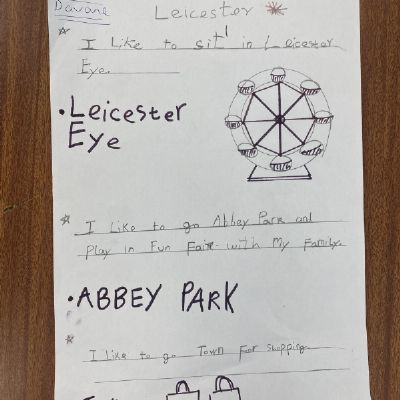 Davane
Leicester
I Like to sit in Leicester
Eye.
• Leicester
Eye
I Like to go Abbey Park and
Play in Fun Fair with My Family.
• ABBEY PARK
I Like to go Town For shopping